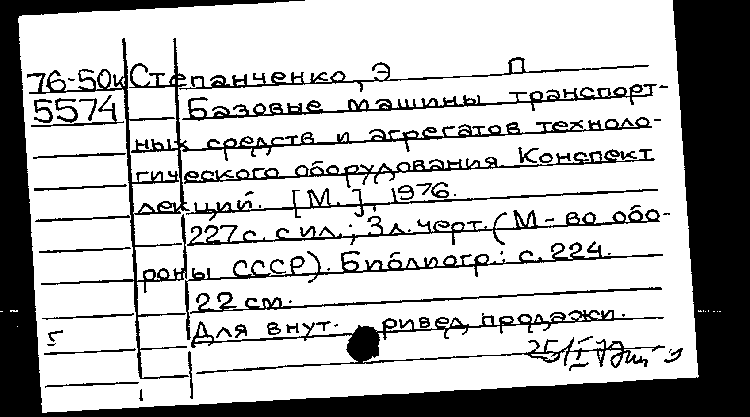 76-50к Степанченко, Э П
5574 Базовые машины транспорт-
ных средств и агрегатов техноло-
гического оборудования Конспект
лекций. [М.], 1976.
227 с. с ил.; 3 л. черт. (М-во обо-
роны СССР). Библиогр.: с. 224.
22 см.
Для внут. продажи.
5
25/I